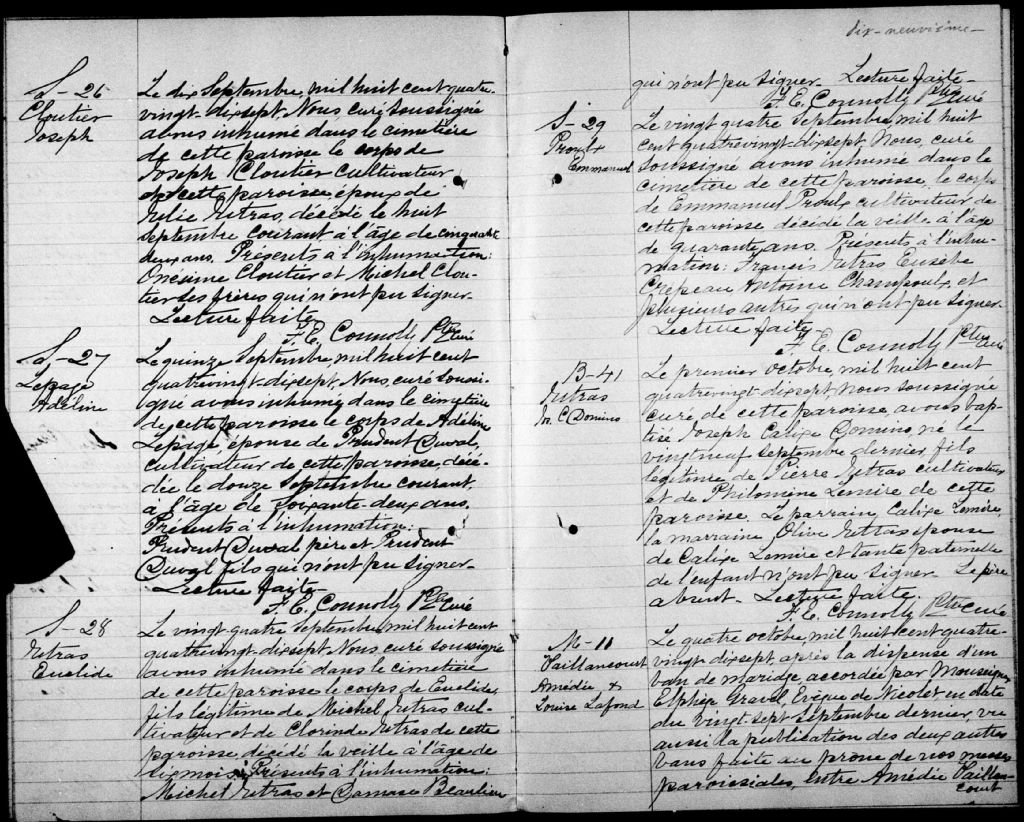 S-26
Cloutier
Joseph
Le dix Septembre, mil huit cent quatre-
vingt-dixsept. Nous, curé soussigné
avons inhumé dans le cimetière
de cette paroisse le corps de
Joseph Cloutier Cultivateur
de cette paroisse, époux de
Julie Jutras, décédé le huit
septembre courant à l'âge de cinquante
deux ans. Présents à l'inhumation:
Onésime Cloutier et Michel Clou-
tier ses frères qui n'ont pu signer.
Lecture faite.
F. E. Connolly Ptre Curé
S-27
Lepage
Adéline
Le quinze Septembre, mil huit cent
quatrevingt-dixsept. Nous, curé soussi-
gné avons inhumé dans le cimetière
de cette paroisse le corps de Adéline
Lepage, épouse de Prudent Duval,
cultivateur de cette paroisse, décé-
dée le douze Septembre courant,
à l'âge de soixante-deux ans.
Présents à l'inhumation:
Prudent Duval père et Prudent
Duval fils qui n'ont pu signer-
Lecture faite-
F. E. Connolly Ptre Curé
S-28
Jutras
Euclide
Le vingt-quatre Septembre, mil huit cent
quatrevingt-dixsept. Nous curé soussigné
avons inhumé dans le cimetière
de cette paroisse le corps de Euclide,
fils légitime de Michel Jutras cul-
tivateur et de Clorinde Jutras de cette
paroisse, décédé la veille à l'âge de
six mois. Présents à l'inhumation:
Michel Jutras et Damase Beaulieu
dix-neuvième-
qui n'ont pu signer. Lecture faite-
F. E. Connolly Ptre Curé
S-29
Proulx
Emmanuel
Le vingt quatre Septembre, mil huit
cent quatrevingt-dixsept Nous, curé
soussigné avons inhumé dans le
cimetière de cette paroisse, le corps
de Emmanuel Proulx cultivateur de
cette paroisse décédé la veille à l'âge
de quarante ans. Présents à l'inhu-
mation: Francis Jutras Eusèbe
Crépeau Antoine Champoux, et
plusieurs autres qui n'ont pu signer.
Lecture faite-
F. E. Connolly Ptre Curé
B-41
Jutras
Js. C Domino
Le premier octobre, mil huit cent
quatrevingt-dixsept, Nous, soussigné
curé de cette paroisse, avons bap-
tisé Joseph Calixe Domino, né le
vingtneuf septembre dernier, fils
légitime de Pierre Jutras cultivateur
et de Philomène Lemire de cette
paroisse. Le parrain, Calixe Lemire,
la marraine, Olive Jutras épouse
de Calixe Lemire et tante paternelle
de l'enfant n'ont pu signer- Le père
absent- Lecture faite.
F. E. Connolly Ptre Curé
M-11
Vaillancourt
Amédée &
Louise Lafond
Le quatre octobre, mil huit cent quatre-
vingt-dixsept, après la dispense d'un
ban de mariage, accordée par Monseigneur
Elphège Gravel, Evêque de Nicolet en date
du vingt-sept septembre dernier, vu
aussi la publication des deux autres
bans faite au prone de nos messes
paroissiales, entre Amédée Vaillan-
court